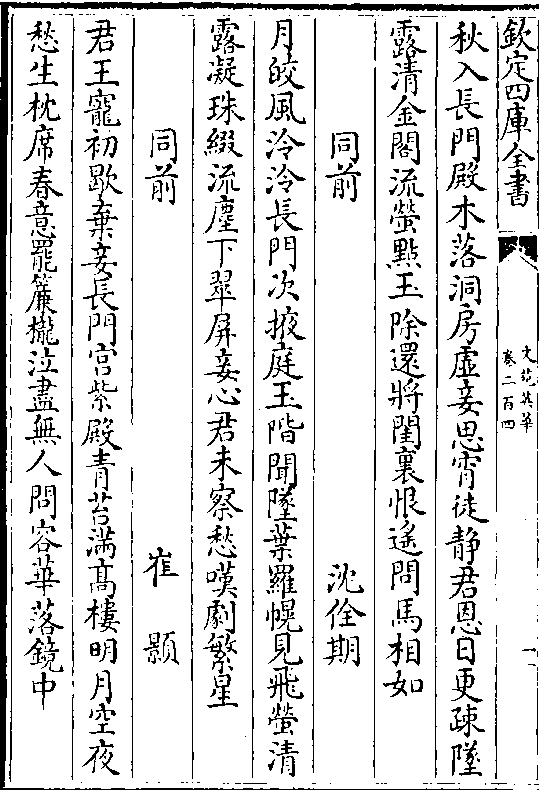 欽定四庫全書
文苑英華
卷二百四
一
秋入長門殿木落洞房虛妾思宵徒静君恩日更疎墜
露清金閣流螢點玉除還將閨裏恨遙問馬相如
同前 沈佺期
月皎風泠泠長門次掖庭玉階聞墜葉羅幌見飛螢清
露凝珠綴流塵下翠屏妾心君未察愁嘆劇繁星
同前 崔顥
君王寵初歇棄妾長門宫紫殿青苔滿高樓明月空夜
愁生枕席春意罷簾櫳泣盡無人問容華落鏡中